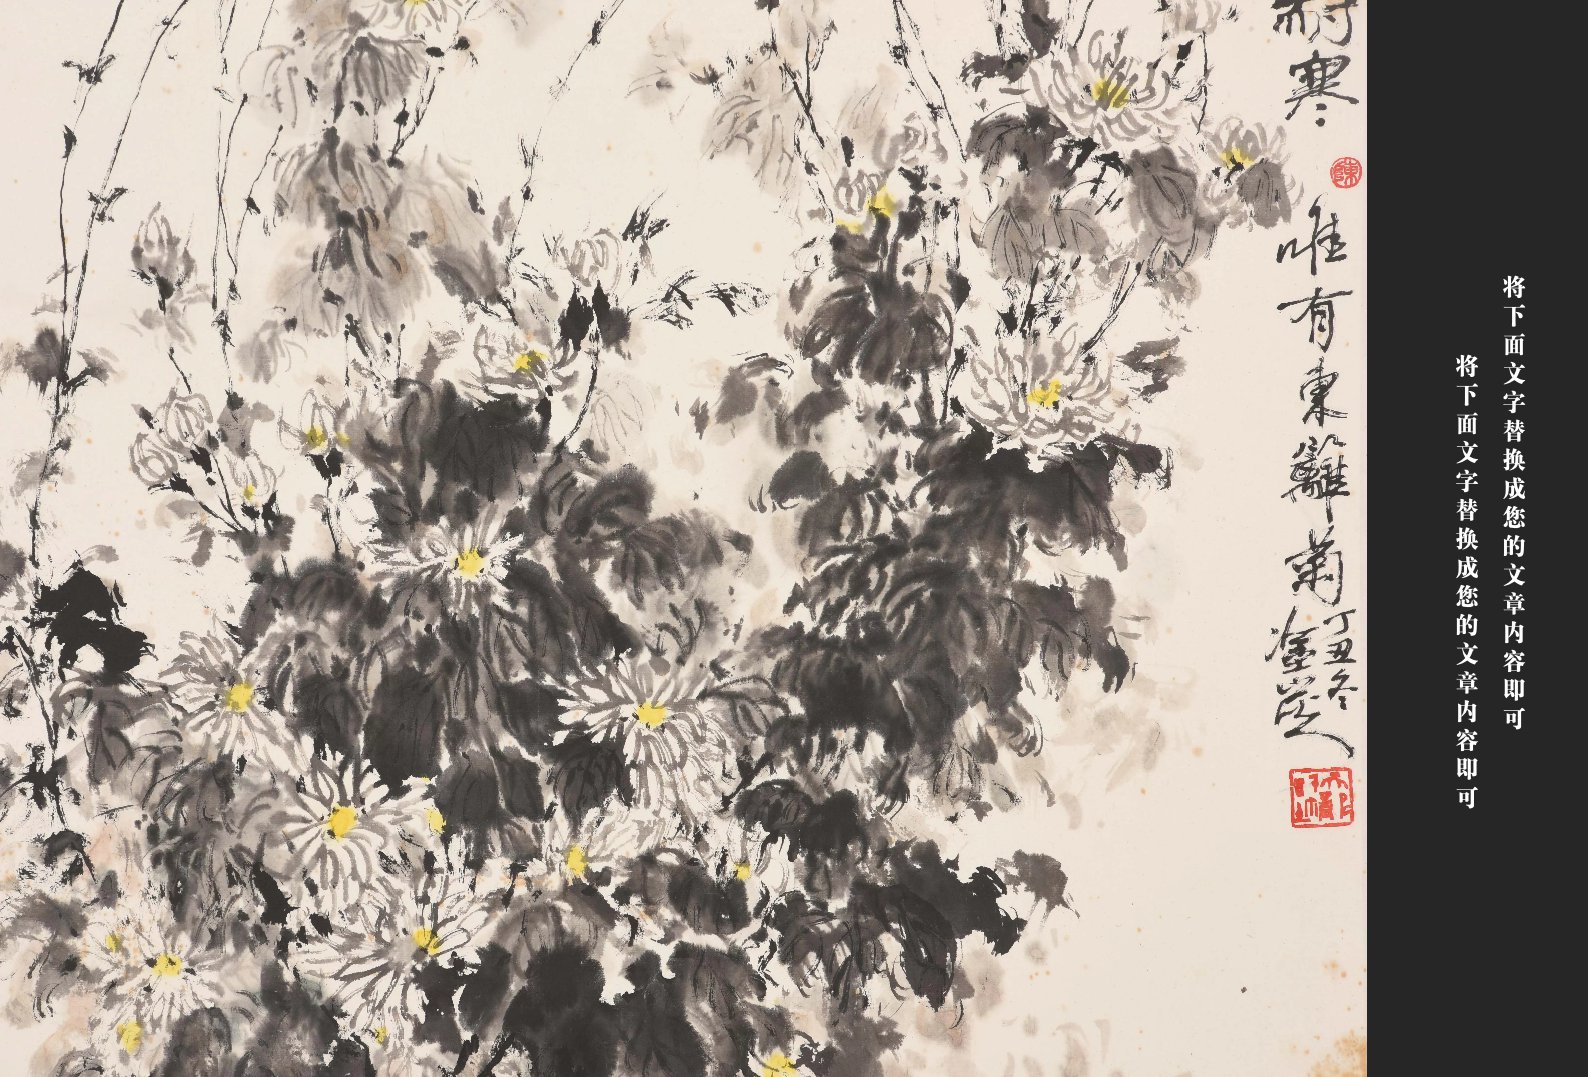 耐寒
唯有東籬菊
丁丑冬
将下面文字替换成您的文章内容即可
将下面文字替换成您的文章内容即可